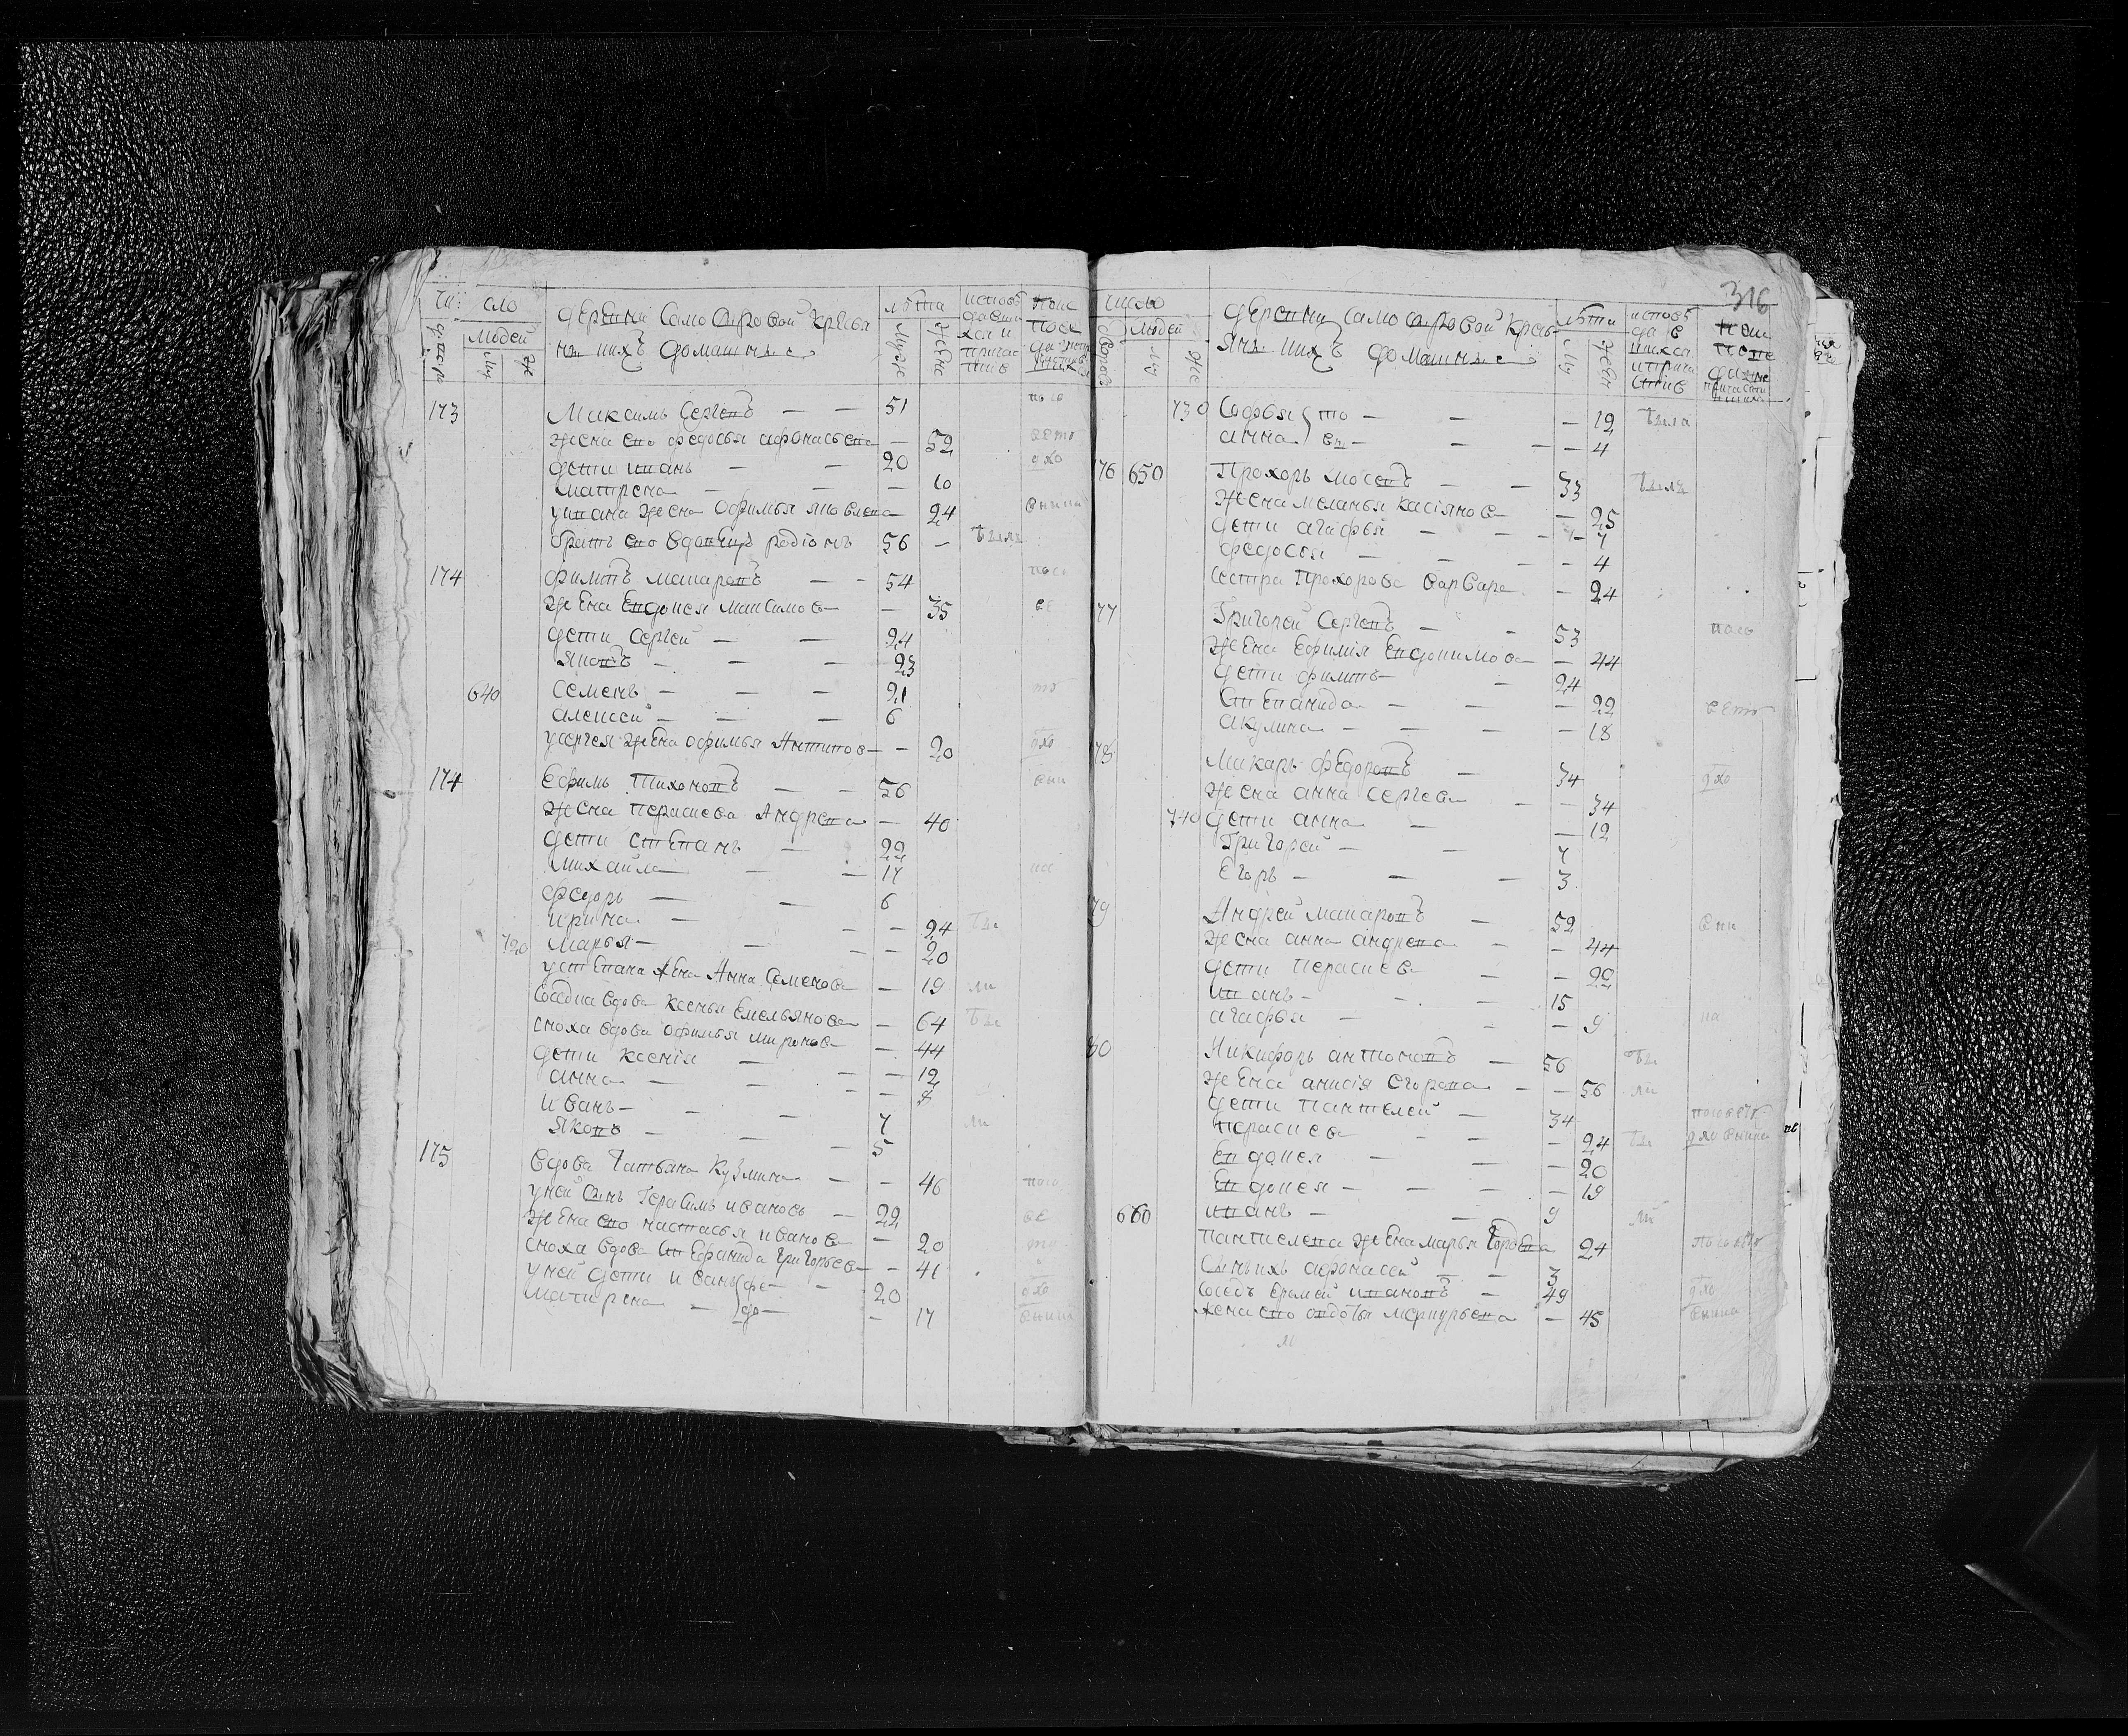 316
Число
дворовъ
Людей
Му
Же
деревни Самодуровой крестья
не и ихъ домашные
лѣта
Муже
Жене
173 Максимъ Сергеевъ — — 51
жена ево федосья афонасьева — 52
дети иванъ — — 20
матрена — — — 10
у ивана жена офимья яковлева — 24
братъ ево вдовецъ родіонъ 56 —
174 филипъ макаровъ — — 54
жена Евдокея максимова — 35
дети Сергей — — 24
яковъ — — — 23
640 семенъ — — — 21
алексей — — — 6
у сергея жена офимья Антипова — 20
174 Ефимъ Тихоновъ — — 56
жена Пераскева Андреева — 40
дети степанъ — 22
михайла — — 17
федоръ — — 6
ирина — — — 24
720 марья — — — 20
у степана жена Анна Семенова — 19
соседка вдова ксенья Емельянова — 64
сноха вдова офимья миронова — 44
дети ксенія — — — 12
анна — — — 8
иванъ — — — 7
яковъ — — — 5
175 вдова Татьяна Кузмина — — 46
у ней сынъ Герасимъ ивановъ — 22
жена ево настасья иванова — 20
сноха вдова Стефанида Григорьева — 41
у ней дети иванъ — 20
матрена — — 17
число
дворовъ
людей
му
же
деревни самодуровой кресть
яне и ихъ домашные
лѣта
му
жен
730 Софья — — — 12
анна — — — 4
76 650 Прохоръ мосеевъ — — 33
жена меланья касіянова — 25
дети агафья — — — 7
федосья — — — 4
сестра прохорова варвара — 24
77 Григорей Сергеевъ — — 53
жена Ефимія Евдокимова — 44
дети филипъ — — 24
Степанида — — — 22
акулина — — — 18
78 Макаръ федоровъ — 34
жена анна сергева — — 34
740 дети анна — — 12
Григорей — — 7
Егоръ — — — 3
79 Андрей макаровъ — 52
жена анна андреева — — 44
дети пераскева — — 22
иванъ — — — 15
агафья — — — 9
80 Никифоръ антоновъ — 56
жена анисія егорова — — 56
дети пантелей — 34
пераскева — — — 24
Евдокея — — — 20
Евдокея — — — 19
660 иванъ — — 9
пантелева жена марья 24
сынъ ихъ афонасей — — 3
соседъ Еремей ивановъ — 49
жена ево авдотья меркурьева — 45